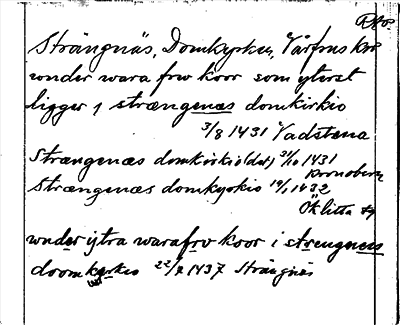 Strängnäs, Domkyrkan, Vårfrus kor
wnder wara frw koor som yterst
ligger j strængenæs domkirkio
3/8 1431 Vadstena
Strængenæs domkirkio (dat) 3/10 1431
Kronoberg
Strængenæs domkyrkio 1432
wnder ytra warafrv koor i strengnæs
doomkyrkio 22/7 1437 Strängnäs